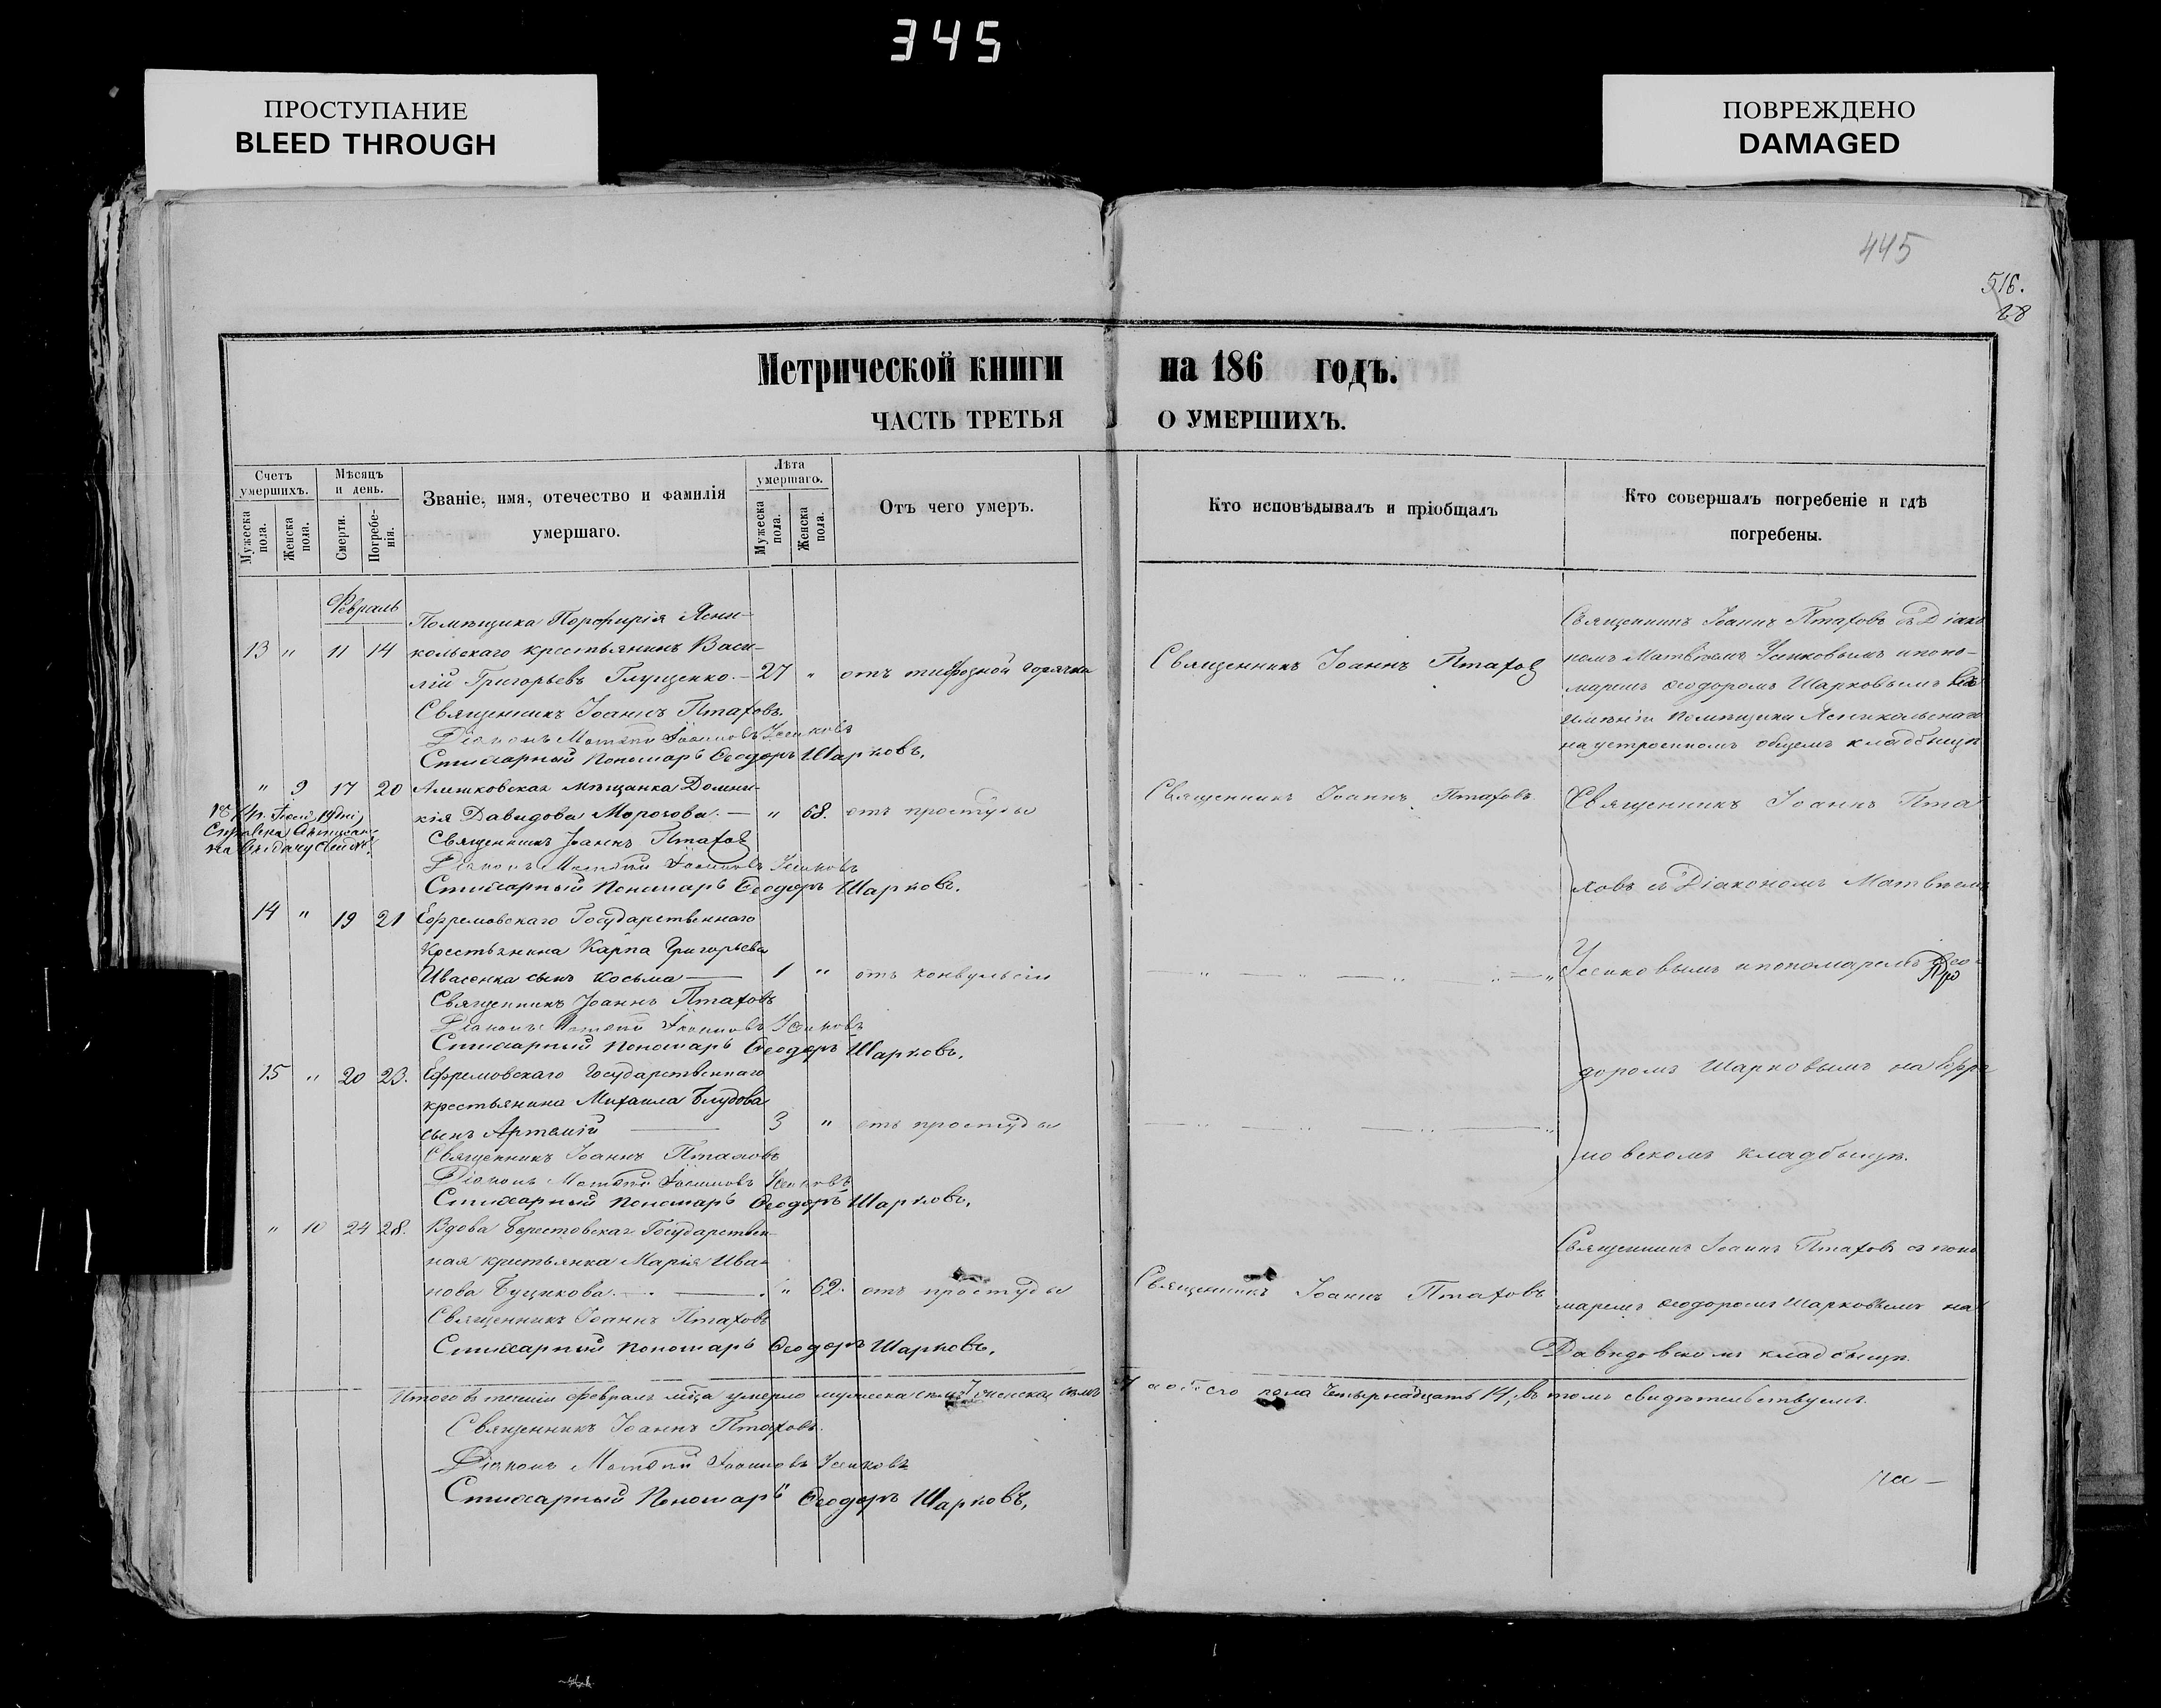 345
ПРОСТУПАНИЕ
BLEED THROUGH
ПОВРЕЖДЕНО
DAMAGED
445
516.
28
Метрической книги на 186 годъ.
ЧАСТЬ ТРЕТЬЯ О УМЕРШИХЪ.
Счетъ умершихъ.
Мужеска пола.
Женска пола.
Мѣсяцъ и день.
Смерти.
Погребенія.
Званіе, имя, отечество и фамилія
умершаго.
Лѣта умершаго.
Мужеска пола.
Женска пола.
Отъ чего умеръ.
Кто исповѣдывалъ и пріобщалъ
Кто совершалъ погребеніе и гдѣ
погребены.
Февраль
Помѣщика Порфирія Ясни-
13 " 11 14 кольскаго крестьянинъ Васи-
лій Григорьевъ Глущенко. — 27 " отъ тифозной горячки
Священникъ Іоаннъ Птахов
Священникъ Іоаннъ Птаховъ съ Діако
номъ Матвѣемъ Усиковымъ и поно-
маремъ Ѳеодоромъ Шарковымъ въ
имѣніи помѣщика Ясникольскаго
на устроенномъ общемъ кладбищѣ
Священникъ Іоаннъ Птаховъ.
Діаконъ Матѳій Іоанновъ Усиковъ
Стихарный Пономарь Ѳеодоръ Шарковъ.
" 9 17 20 Алешковская мѣщанка Домни-
кія Давидова Морозова. — " 68. отъ простуды
Священникъ Іоаннъ Птаховъ
Священникъ Іоаннъ Пта
Священникъ Іоаннъ Птахов
Діаконъ Матѳій Іоанновъ Усиковъ
Стихарный Пономарь Ѳеодоръ Шарковъ.
ховъ съ Діакономъ Матвѣемъ
14 " 19 21 Ефремовскаго Государственнаго
Крестьянина Карпа Григорьева
Ивасенка сынъ Косьма — 1 " отъ конвульсіи
Усиковымъ и пономаремъ Ѳео-
Священникъ Іоаннъ Птаховъ
Діаконъ Матѳій Іоанновъ Усиковъ
Стихарный Пономарь Ѳеодоръ Шарковъ.
15 " 20 23. Ефремовскаго Государственнаго
крестьянина Михаила Блудова
сынъ Артемій — 3 " отъ простуды
доромъ Шарковымъ на Ефре
мовскомъ кладбищѣ.
Священникъ Іоаннъ Птаховъ
Діаконъ Матѳій Іоанновъ Усиковъ
Стихарный Пономарь Ѳеодоръ Шарковъ.
" 10 24 28. Вдова Берестовская Государствен-
ная крестьянка Марія Ива-
нова Буцикова. — " 62. отъ простуды
Священникъ Іоаннъ Птаховъ
Священникъ Іоаннъ Птаховъ съ поно
маремъ Ѳеодоромъ Шарковымъ на
Давидовскомъ кладбищѣ.
Священникъ Іоаннъ Птаховъ
Стихарный Пономарь Ѳеодоръ Шарковъ.
Итого в теченіи февраль мѣца умерло мужеска семь 7 женска семь 7 а обоего пола четырнадцать 14, в томъ свидѣтельствуемъ.
Священникъ Іоаннъ Птаховъ.
Діаконъ Матѳій Іоанновъ Усиковъ
Стихарный Пономарь Ѳеодоръ Шарковъ.